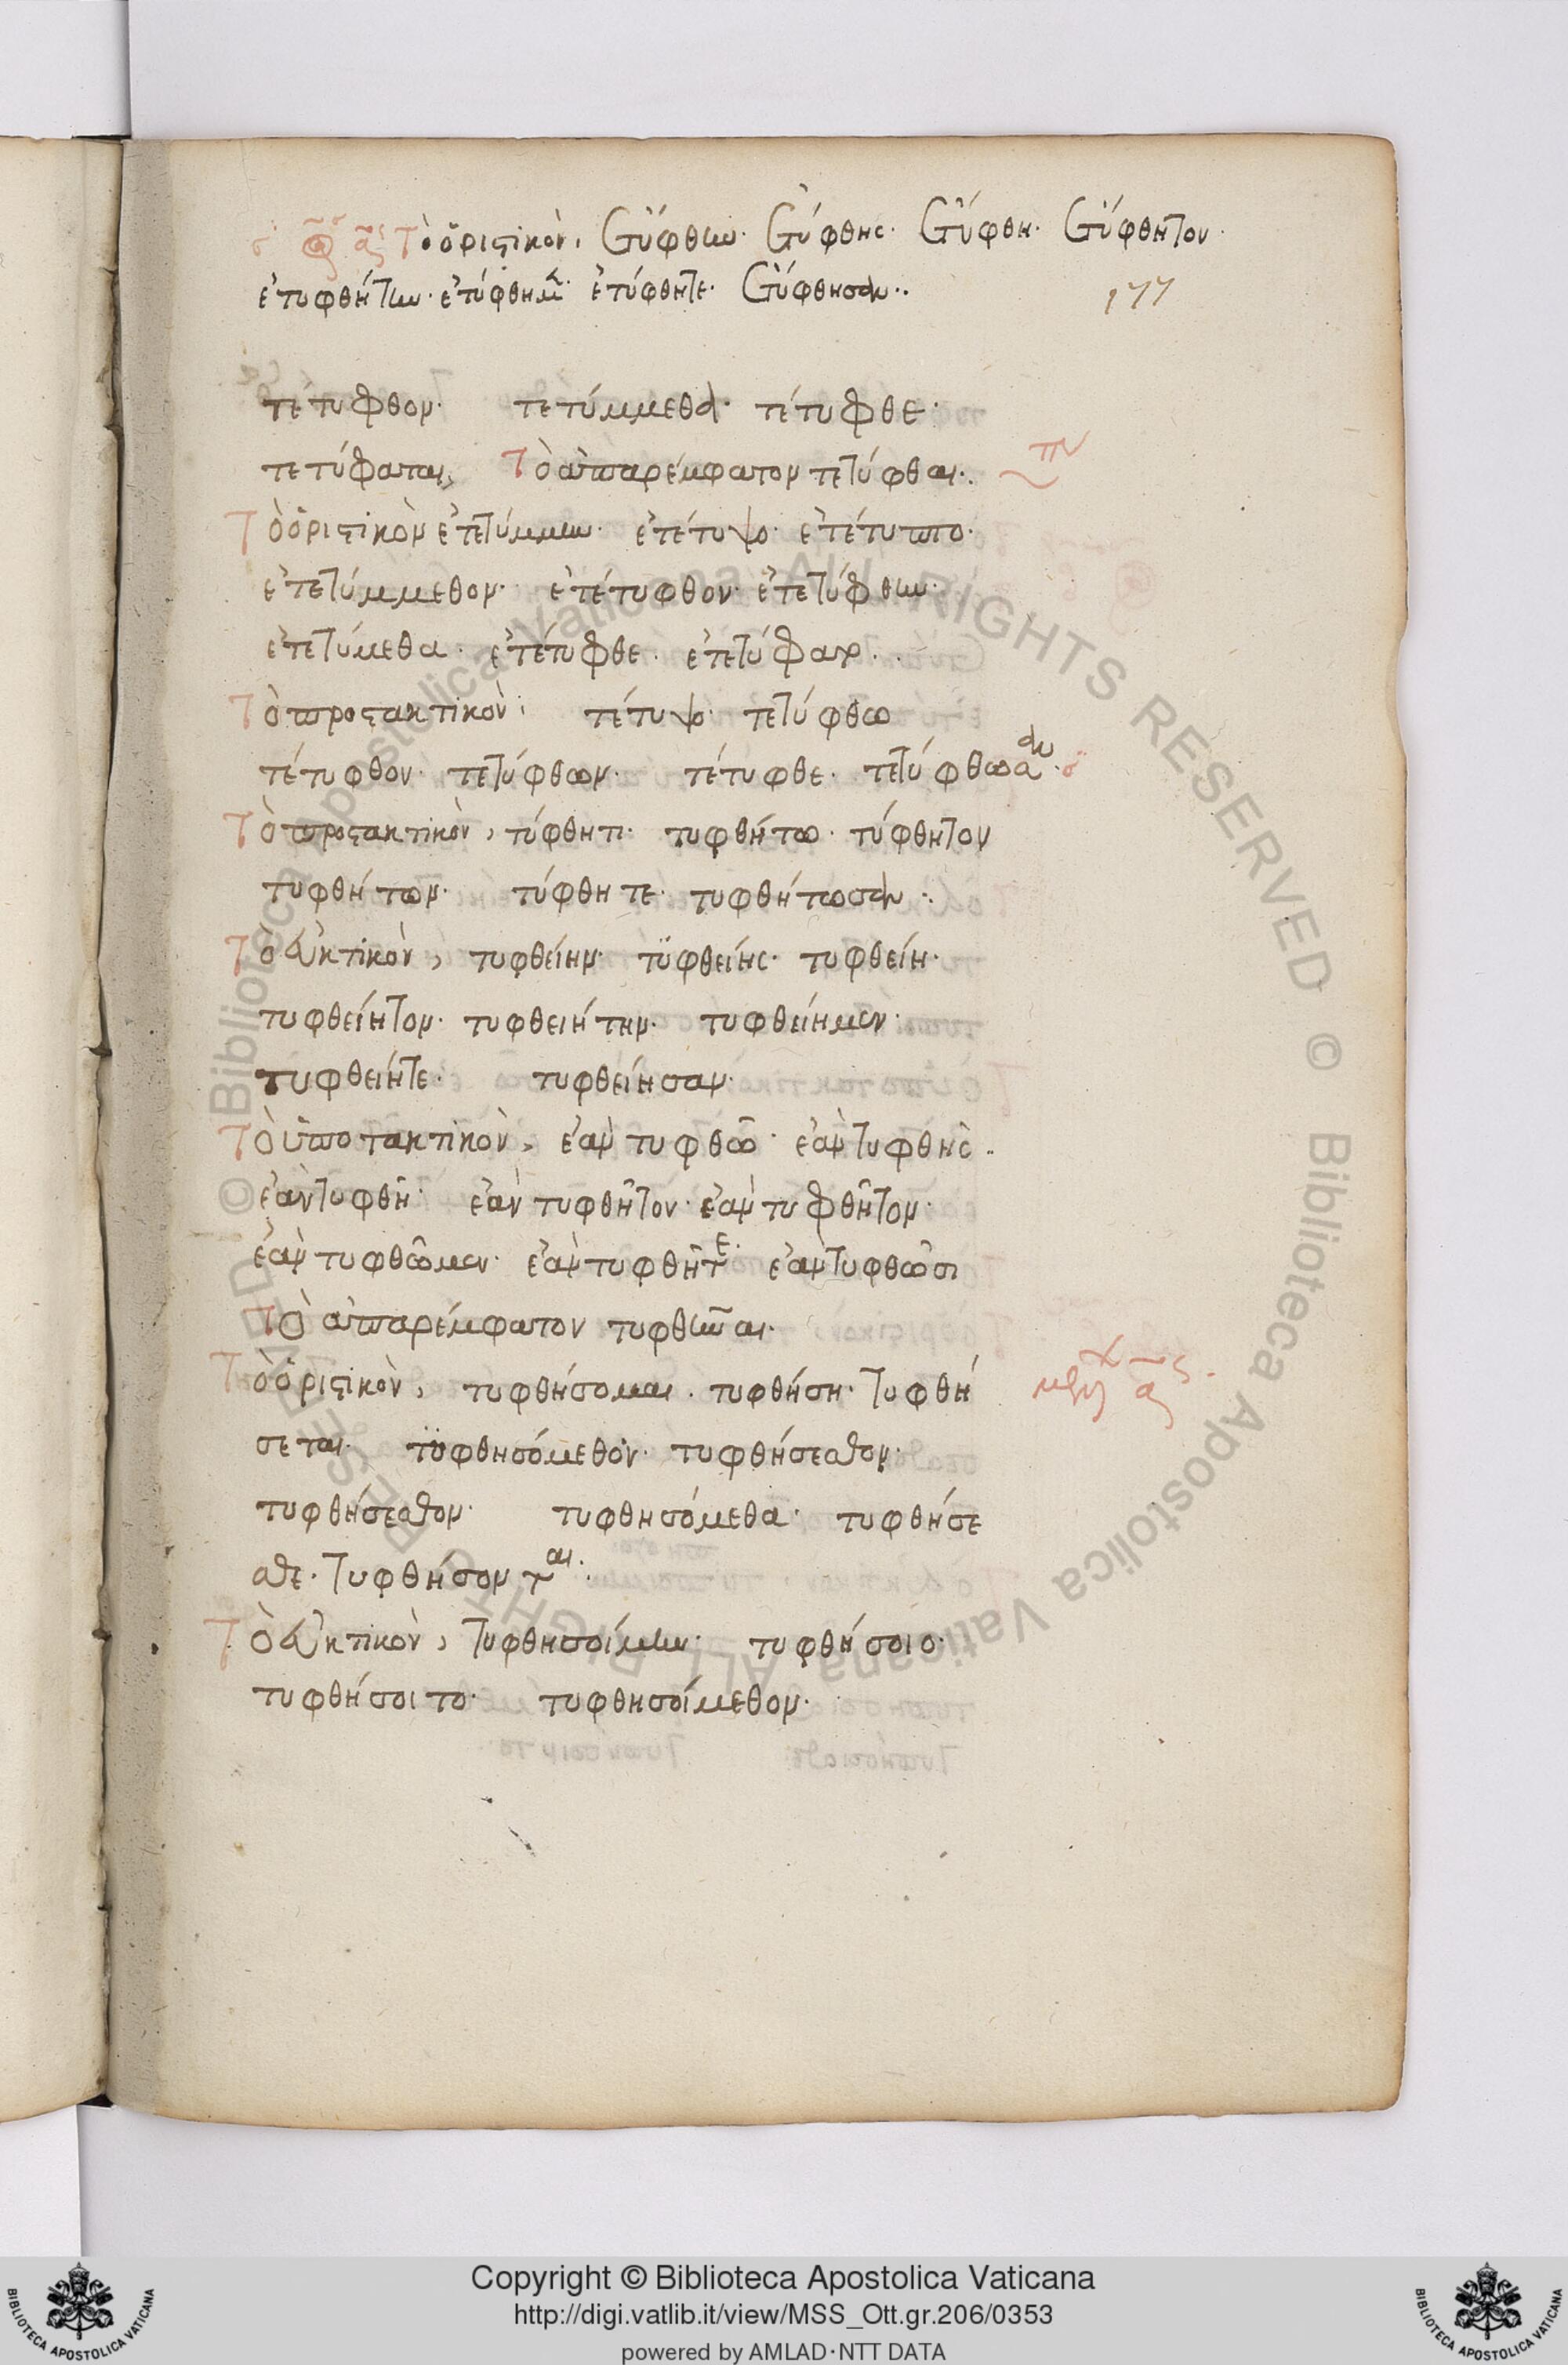 Τὸ ὁριστικὸν, ἐτύφθην· ἐτύφθης· ἐτύφθη· ἐτύφθητον·
ἐτυφθήτην· ἐτύφθημεν· ἐτύφθητε· ἐτύφθησαν··
177
τέτυφθον· τετύμμεθα· τέτυφθε·
τετύφαται, Τὸ ἀπαρέμφατον τετύφθαι··
Τὸ ὁριστικὸν ἐτετύμμην· ἐτέτυψο· ἐτέτυπτο·
ἐτετύμμεθον· ἐτέτυφθον· ἐτετύφθην·
ἐτετύμεθα· ἐτέτυφθε· ἐτετύφατο··
Τὸ προστακτικὸν, τέτυψο· τετύφθω
τέτυφθον· τετύφθων· τέτυφθε· τετύφθωσαν·
Τὸ προστακτικὸν, τύφθητι· τυφθήτω· τύφθητον
τυφθήτων· τύφθητε· τυφθήτωσαν··
Τὸ εὐκτικὸν, τυφθείην· τϋφθείης· τυφθείη·
τυφθείητον· τυφθειήτην· τυφθείημεν·
τυφθειήτε· τυφθείησαν·
Τὸ ὑποτακτικὸν, ἐὰν τυφθῶ· ἐὰν τυφθῆς··
ἐὰν τυφθῆ· ἐὰν τυφθῆτον· ἐὰν τυφθῆτον·
ἐὰν τυφθῶμεν· ἐὰν τυφθῆτε· ἐὰν τυφθῶσι
Τὸ ἀπαρέμφατον τυφθῆναι·
Τὸ ὁριστικὸν, τυφθήσομαι· τυφθήση· τυφθή
σεται· τϋφθησόμεθον· τυφθήσεσθον·
τυφθήσεσθον· τυφθησόμεθα· τυφθήσε
σθε· τυφθήσονται·
Τὸ εὐκτικὸν, τυφθησοίμην· τυφθήσοιο·
τυφθήσοιτο· τυφθησοίμεθον·
Copyright © Biblioteca Apostolica Vaticana
http://digi.vatlib.it/view/MSS_Ott.gr.206/0353
powered by AMLAD·NTT DATA
BIBLIOTECA APOSTOLICA VATICANA
BIBLIOTECA APOSTOLICA VATICANA
© Biblioteca Apostolica Vaticana ALL RIGHTS RESERVED
© Biblioteca Apostolica Vaticana ALL RIGHTS RESERVED